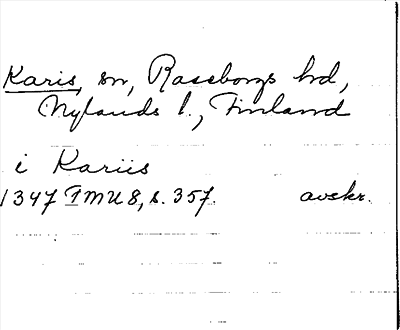 Karis, sn, Raseborgs hd,
Nylands l., Finland
i Kariis
1347 FMU 8, s. 357. avskr.